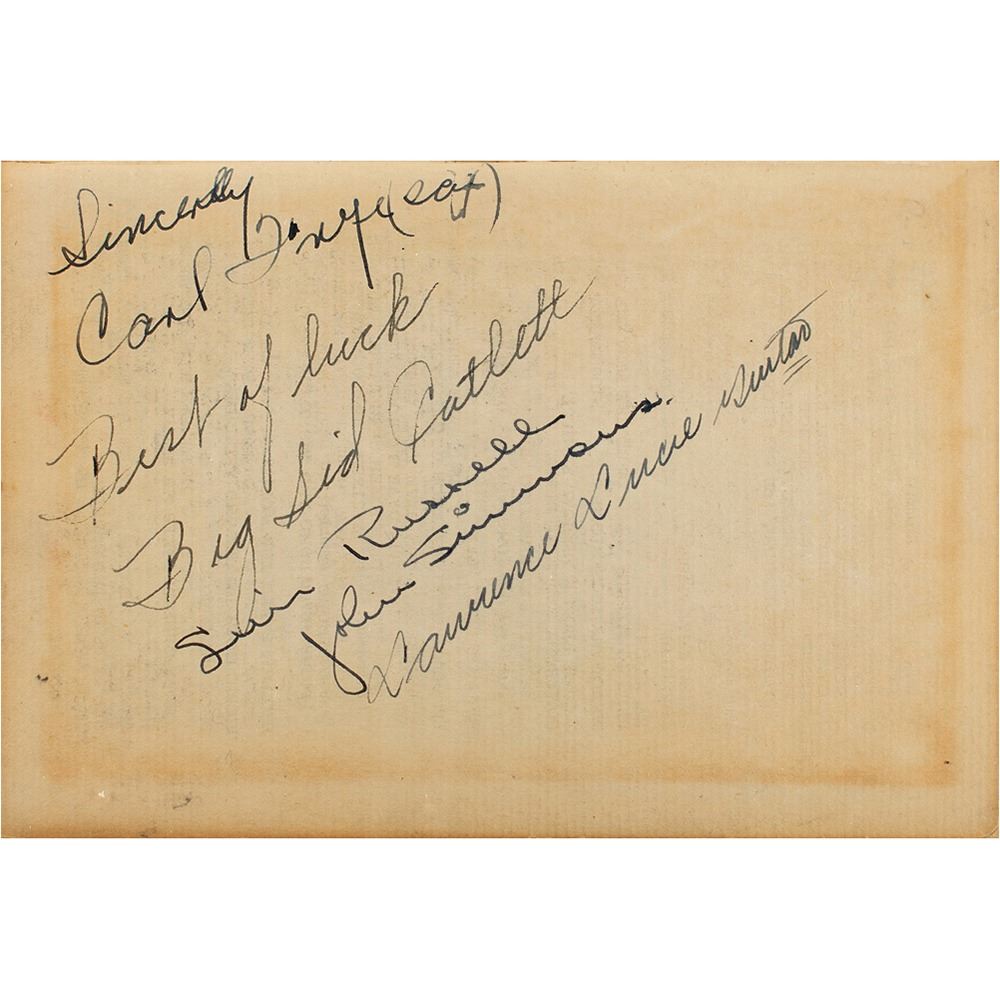 Sincerely
Carl Frye (sax)
Best of luck
Big Sid Catlett
Russell
John Simmons.
Lawrence Lucie Guitar